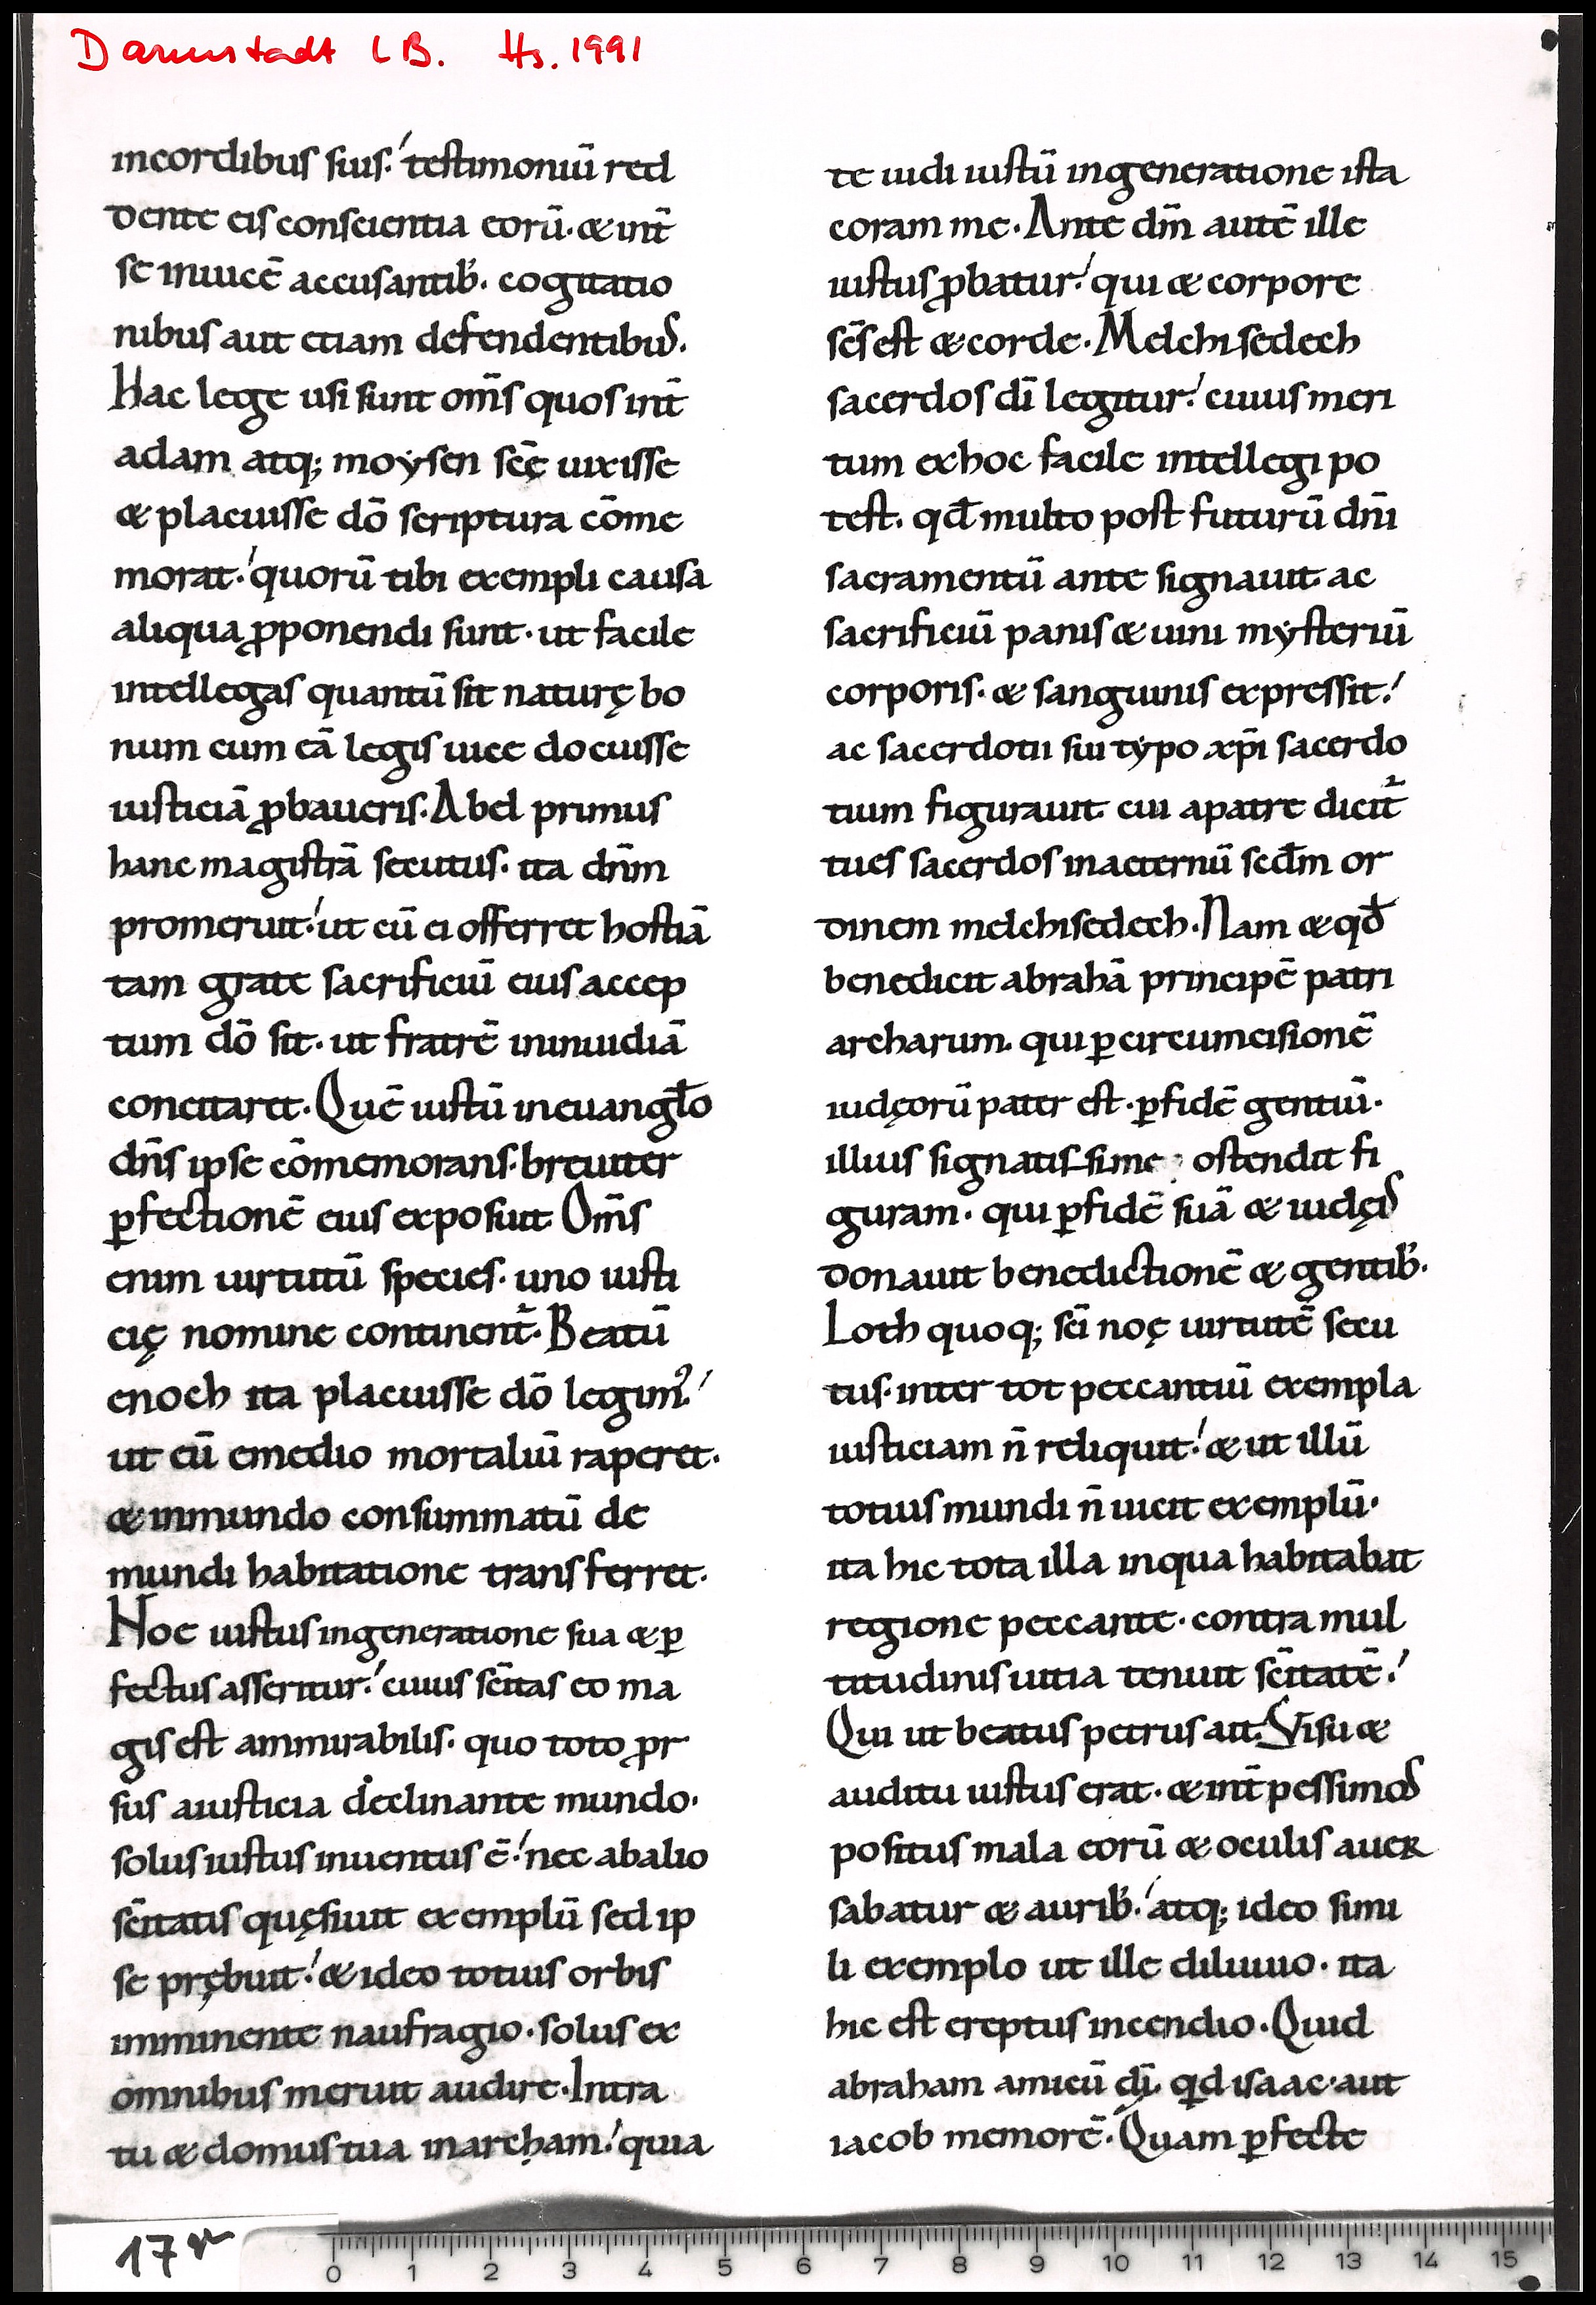 Darmstadt LB. Hs. 1991
incordibus suis. testimoniū red
dente eis conscientia eorū. & int̄
se inuicē accusantib'. cogitatio
nibus aut etiam defendentibus.
Hac lege usi sunt om̄s quos int̄
adam atq; moysen sc̄ę uixisse
& placuisse dō scriptura cōme
morat. quorū tibi exempli causa
aliqua ꝓponendi sunt. ut facile
intellegas quantū sit naturę bo
num cum eā legis uice docuisse
iusticiā ꝓbaueris. Abel primus
hanc magistrā secutus. ita dn̄m
promeruit. ut cū ei offerret hostiā
tam grate sacrificiū eius accep
tum dō sit. ut fratrē ininuidiā
concitaret. Quē iustū ineuangł̄o
dn̄s ipse cōmemorans. breuiter
ꝑfectionē eius exposuit. Om̄s
enim uirtutū species. uno iusti
cię nomine continent᷑. Beatū
enoch ita placuisse dō legimꝰ.
ut eū emedio mortaliū raperet.
& inmundo consummatū de
mundi habitatione transferret.
Noe iustus ingeneratione sua & ꝑ
fectus asseritur. cuius sc̄itas eo ma
gis est ammirabilis. quo toto ꝓr
sus aiusticia declinante mundo.
solus iustus inuentus ē. nec abalio
sc̄itatis quęsiuit exemplū sed ip
se prębuit. & ideo totius orbis
imminente naufragio. solus ex
omnibus meruit audire. Intra
tu & domus tua inarcham. quia
te uidi iustū ingeneratione ista
coram me. Ante dm̄ autē ille
iustus ꝓbatur. qui & corpore
sc̄s est & corde. Melchisedech
sacerdos dī legitur. cuius meri
tum exhoc facile intellegi po
test. qđ multo post futurū dn̄i
sacramentū ante signauit. ac
sacrificiū panis & uini mysteriū
corporis. & sanguinis expressit.
ac sacerdotii sui typo xp̄i sacerdo
tium figurauit. cui apatre dicit᷑
tues sacerdos inaeternū secđm or
dinem melchisedech. Nam & qđ
benedicit abrahā principē patri
archarum. qui ꝑ circumcisionē
iudęorū pater est. ꝑ fidē gentiū.
illius signatissime ostendit fi
guram. qui ꝑ fidē suā & iudęis
donauit benedictionē & gentib'.
Loth quoq; sc̄i noę uirtutē secu
tus. inter tot peccantiū exempla
iusticiam n̄ reliquit. & ut illū
totius mundi n̄ uicit exemplū.
ita hic tota illa inqua habitabat
regione peccante. contra mul
titudinis uitia tenuit sc̄itatē.
Qui ut beatus petrus ait. Visu &
auditu iustus erat. & int̄ pessimos
positus mala eorū & oculis auer
sabatur & aurib'. atq; ideo simi
li exemplo ut ille diluuio. ita
hic est ereptus incendio. Quid
abraham amicū dī. qd isaac. aut
iacob memorē. Quam ꝑfecte
17r
0 1 2 3 4 5 6 7 8 9 10 11 12 13 14 15